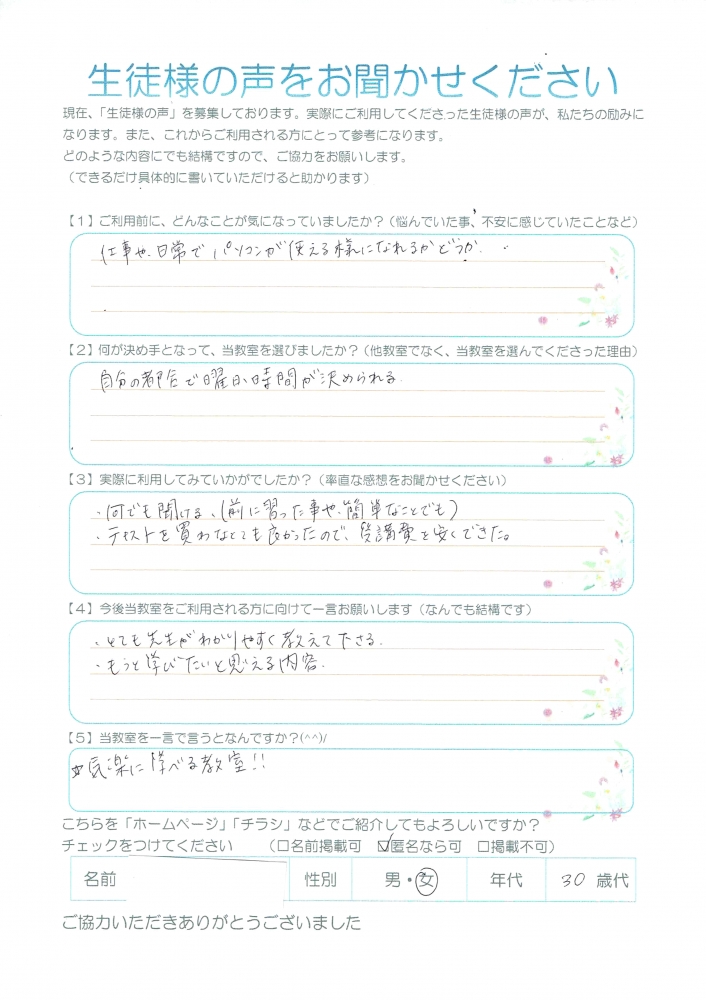 生徒様の声をお聞かせください
現在、「生徒様の声」を募集しております。実際にご利用してくださった生徒様の声が、私たちの励みに
なります。また、これからご利用される方にとって参考になります。
どのような内容にでも結構ですので、ご協力をお願いします。
(できるだけ具体的に書いていただけると助かります)
【1】ご利用前に、どんなことが気になっていましたか?(悩んでいた事、不安に感じていたことなど)
仕事や、日常でパソコンが使える様になれるかどうか。
【2】何が決め手となって、当教室を選びましたか?(他教室でなく、当教室を選んでくださった理由)
自分の都合で曜日、時間が決められる。
【3】実際に利用してみていかがでしたか?(率直な感想をお聞かせください)
・何でも聞ける、(前に習った事や、簡単なことでも)
・テキストを買わなくても良かったので、受講費を安くできた。
【4】今後当教室をご利用される方に向けて一言お願いします(なんでも結構です)
・とても先生がわかりやすく教えて下さる。
・もっと学びたいと思える内容。
【5】当教室を一言で言うとなんですか?(^^)/
☆気楽に学べる教室!!
こちらを「ホームページ」「チラシ」などでご紹介してもよろしいですか?
チェックをつけてください (□名前掲載可 ☑匿名なら可 □掲載不可)
名前 性別 男・女 年代 30 歳代
ご協力いただきありがとうございました